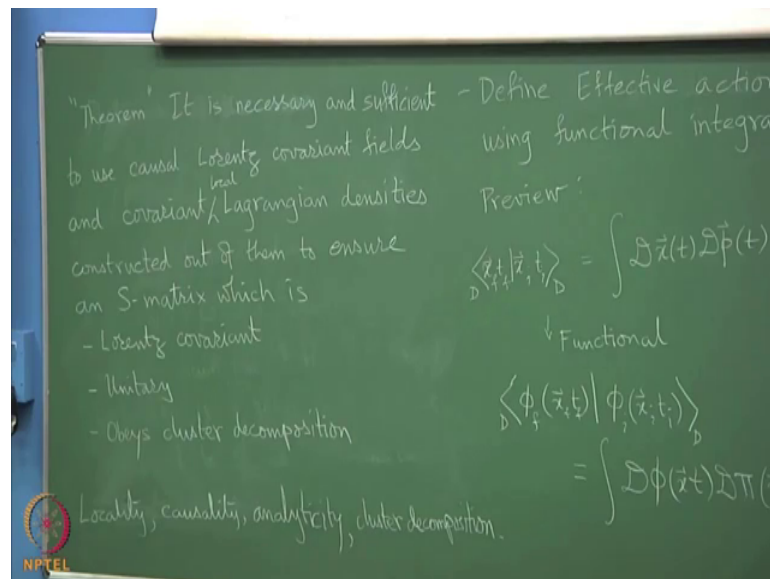 "Theorem" It is necessary and sufficient
to use causal Lorentz covariant fields
and covariant, local Lagrangian densities
constructed out of them to ensure
an S-matrix which is
- Lorentz covariant
- Unitary
- Obeys cluster decomposition
Locality, causality, analyticity, cluster decomposition.
- Define Effective action
using functional integra
Preview:
D⟨x⃗_f t_f|x⃗_i t_i⟩_D = ∫ 𝒟x⃗(t) 𝒟p⃗(t)
↓ Functional
D⟨ϕ_f(x⃗_f t_f)|ϕ_i(x⃗_i t_i)⟩_D
= ∫ 𝒟ϕ(x⃗t) 𝒟Π(
NPTEL